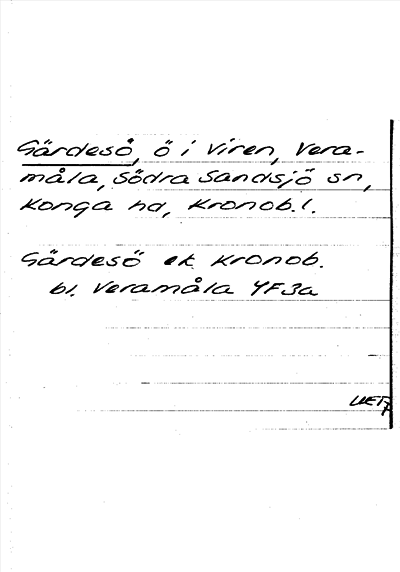 Gärdesö, ö i Viren, Vera-
måla, Södra Sandsjö sn,
Konga hd, Kronob.l.
Gärdesö ek Kronob.
bl. Veramåla 4F3a